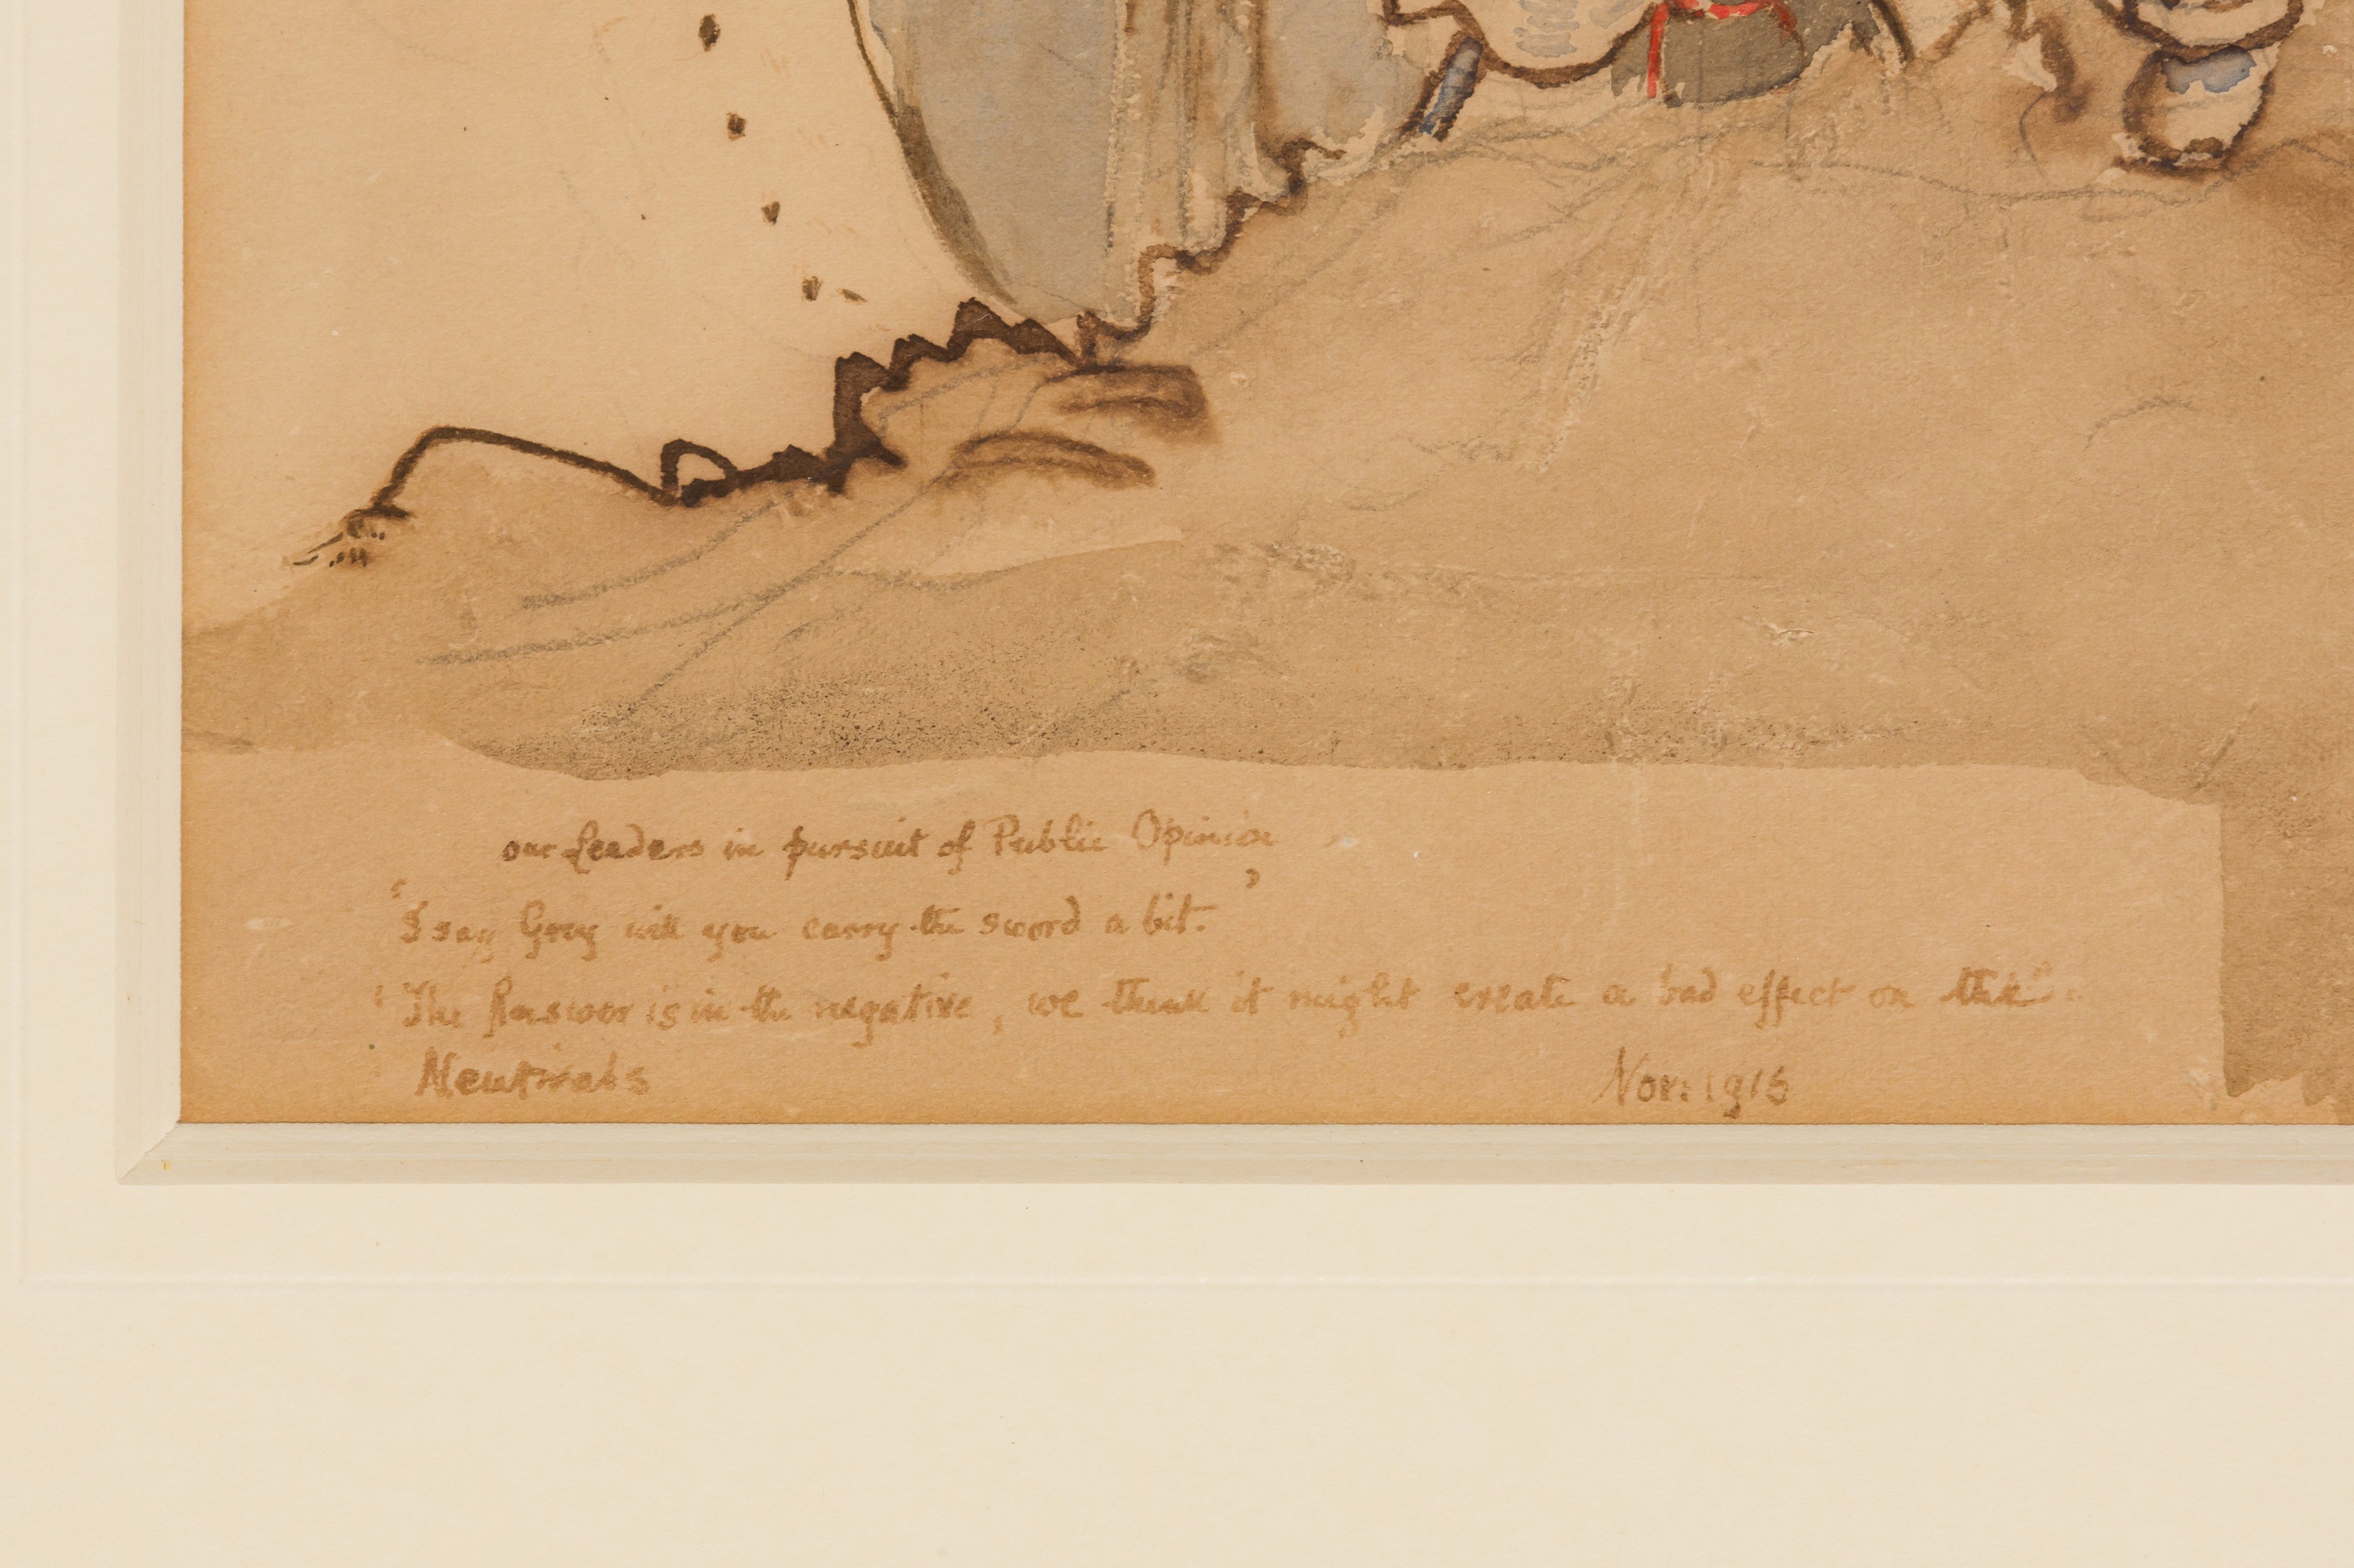 our Leaders in pursuit of Public Opinion
"I say Grey will you carry the sword a bit."
"The Answer is in the negative, we think it might create a bad effect on the"
Neutrals Nov: 1915